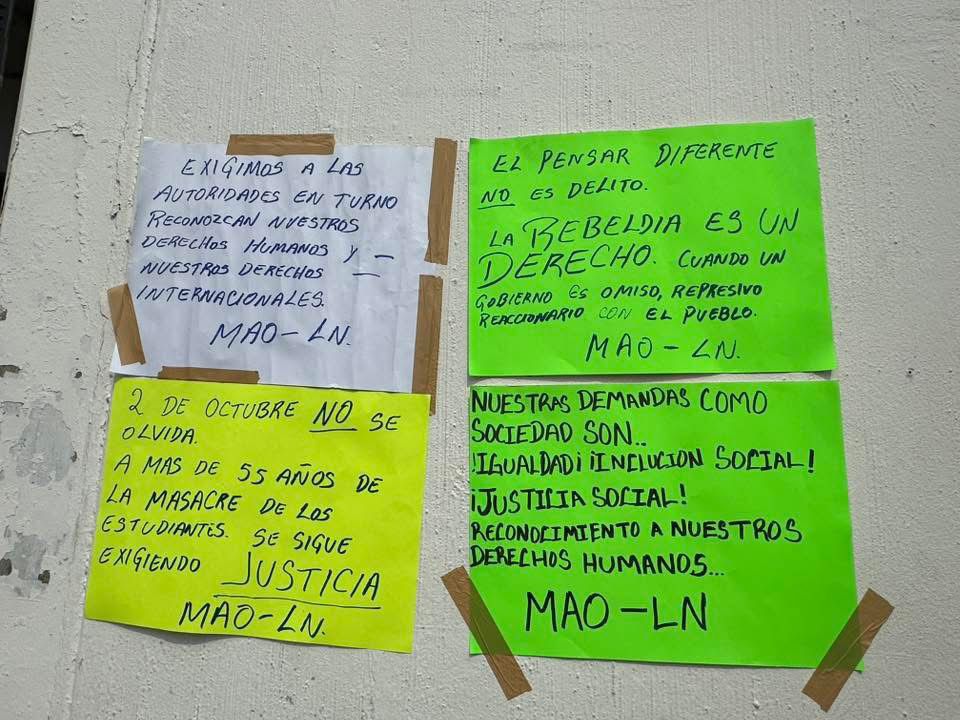 EXIGIMOS A LAS
AUTORIDADES EN TURNO
RECONOZCAN NUESTROS
DERECHOS HUMANOS Y –
NUESTROS DERECHOS –
INTERNACIONALES.
MAO-LN.
EL PENSAR DIFERENTE
NO ES DELITO.
LA REBELDIA ES UN
DERECHO. CUANDO UN
GOBIERNO ES OMISO, REPRESIVO
REACCIONARIO CON EL PUEBLO.
MAO-LN.
2 DE OCTUBRE NO SE
OLVIDA.
A MAS DE 55 AÑOS DE
LA MASACRE DE LOS
ESTUDIANTES. SE SIGUE
EXIGIENDO JUSTICIA
MAO-LN.
NUESTRAS DEMANDAS COMO
SOCIEDAD SON..
!IGUALDAD¡ ¡INCLUCION SOCIAL!
¡JUSTICIA SOCIAL!
RECONOCIMIENTO A NUESTROS
DERECHOS HUMANOS...
MAO-LN